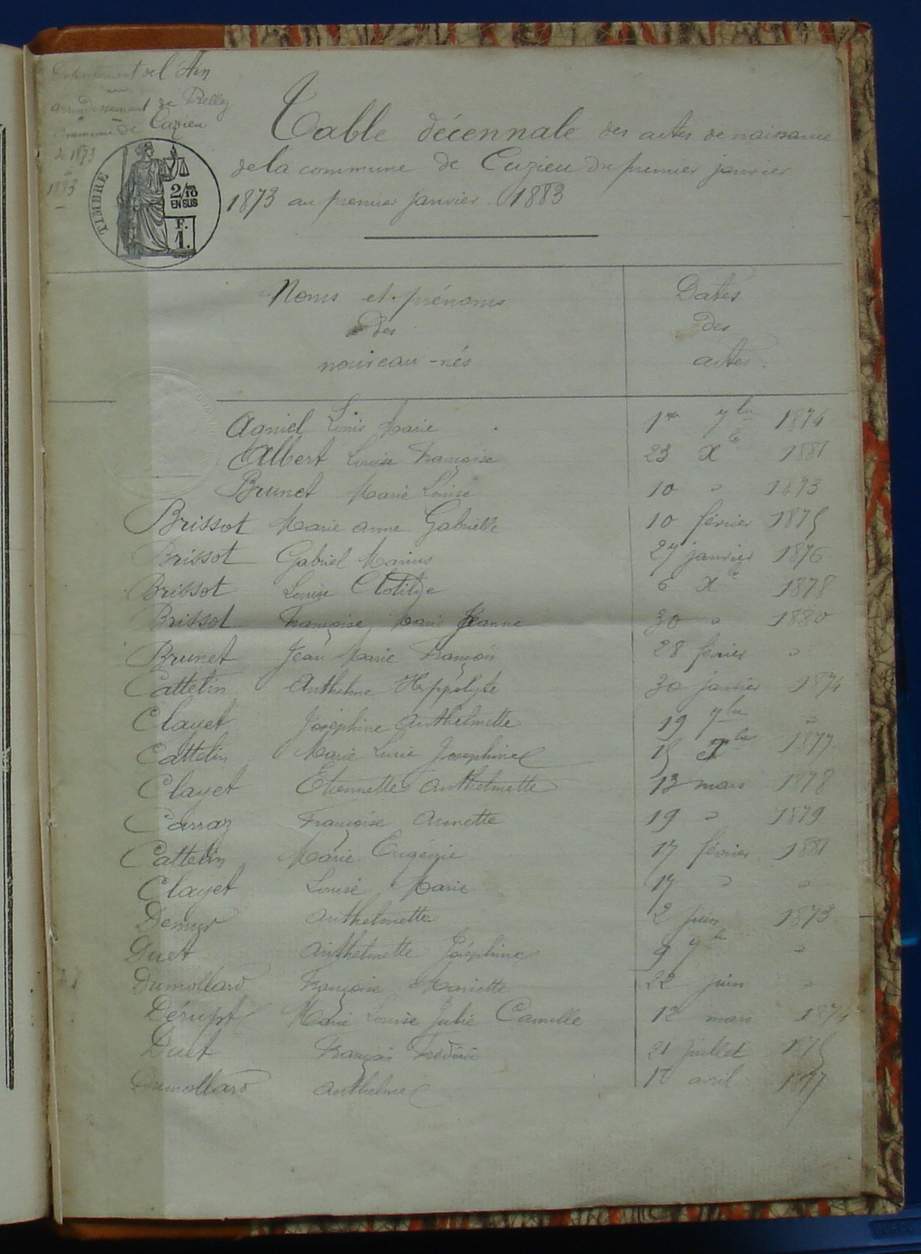 Département de l'Ain
arrondissement de Belley
Commune de Cuzieu
de 1873
à
1883
TIMBRE
2/10
EN SUS
F.
1.
Table décennale des actes de naissance
de la commune de Cuzieu du premier janvier
1873 au premier janvier 1883
Noms et prénoms
des
nouveau-nés
Dates
des
actes
Louis Marie 1er 7bre 1874
Albert Louise Françoise 23 Xe 1881
Brunet Marie Louise 10 "
Brissot Marie Anne Gabrielle 10 février 1875
Brissot Gabriel Marius 27 janvier 1876
Brissot Louise Clotilde 6 Xe 1878
Brissot Françoise Marie Jeanne 30 " 1880
Brunet Jean Marie François 28 février "
Cattelin Anthelme Hippolyte 30 janvier 1874
Clayet Joséphine Anthelmette 19 7bre "
Cattelin Marie Lucie Josephine 15 1877
Clayet Etiennette Anthelmette 13 mars 1878
Carraz Françoise Annette 19 " 1879
Cattelin Marie Eugenie 17 février 1881
Clayet Louise Marie 17 " "
Anthelmette 2 juin 1873
Duet Anthelmette Joséphine 9 "
Dumollard Françoise Mariette 22 juin "
Dérupt Marie Louise Julie Camille 12 mars 1874
Duet François Frédéric 21 juillet 1875
Dumollard Anthelme avril 1877